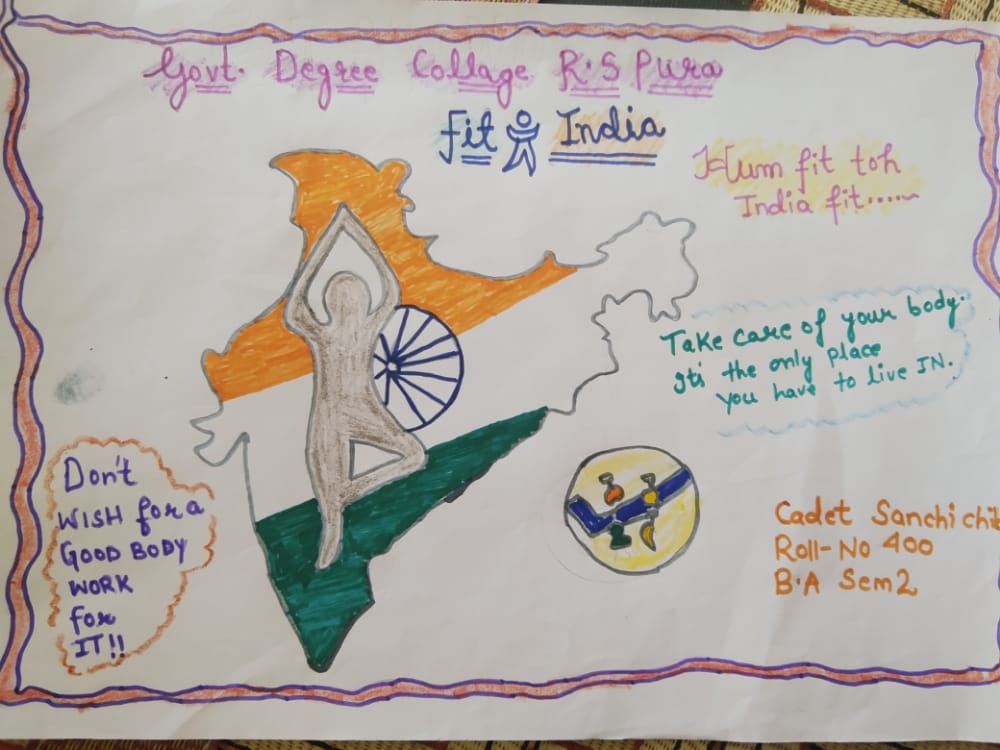 Govt. Degree Collage R.S Pura
Fit India
Hum fit toh
India fit.....
Take care of your body.
Its the only place
you have to live IN.
Don't
WISH for a
GOOD BODY
WORK
for
IT!!
Cadet Sanchi
Roll-No 400
B.A Sem2